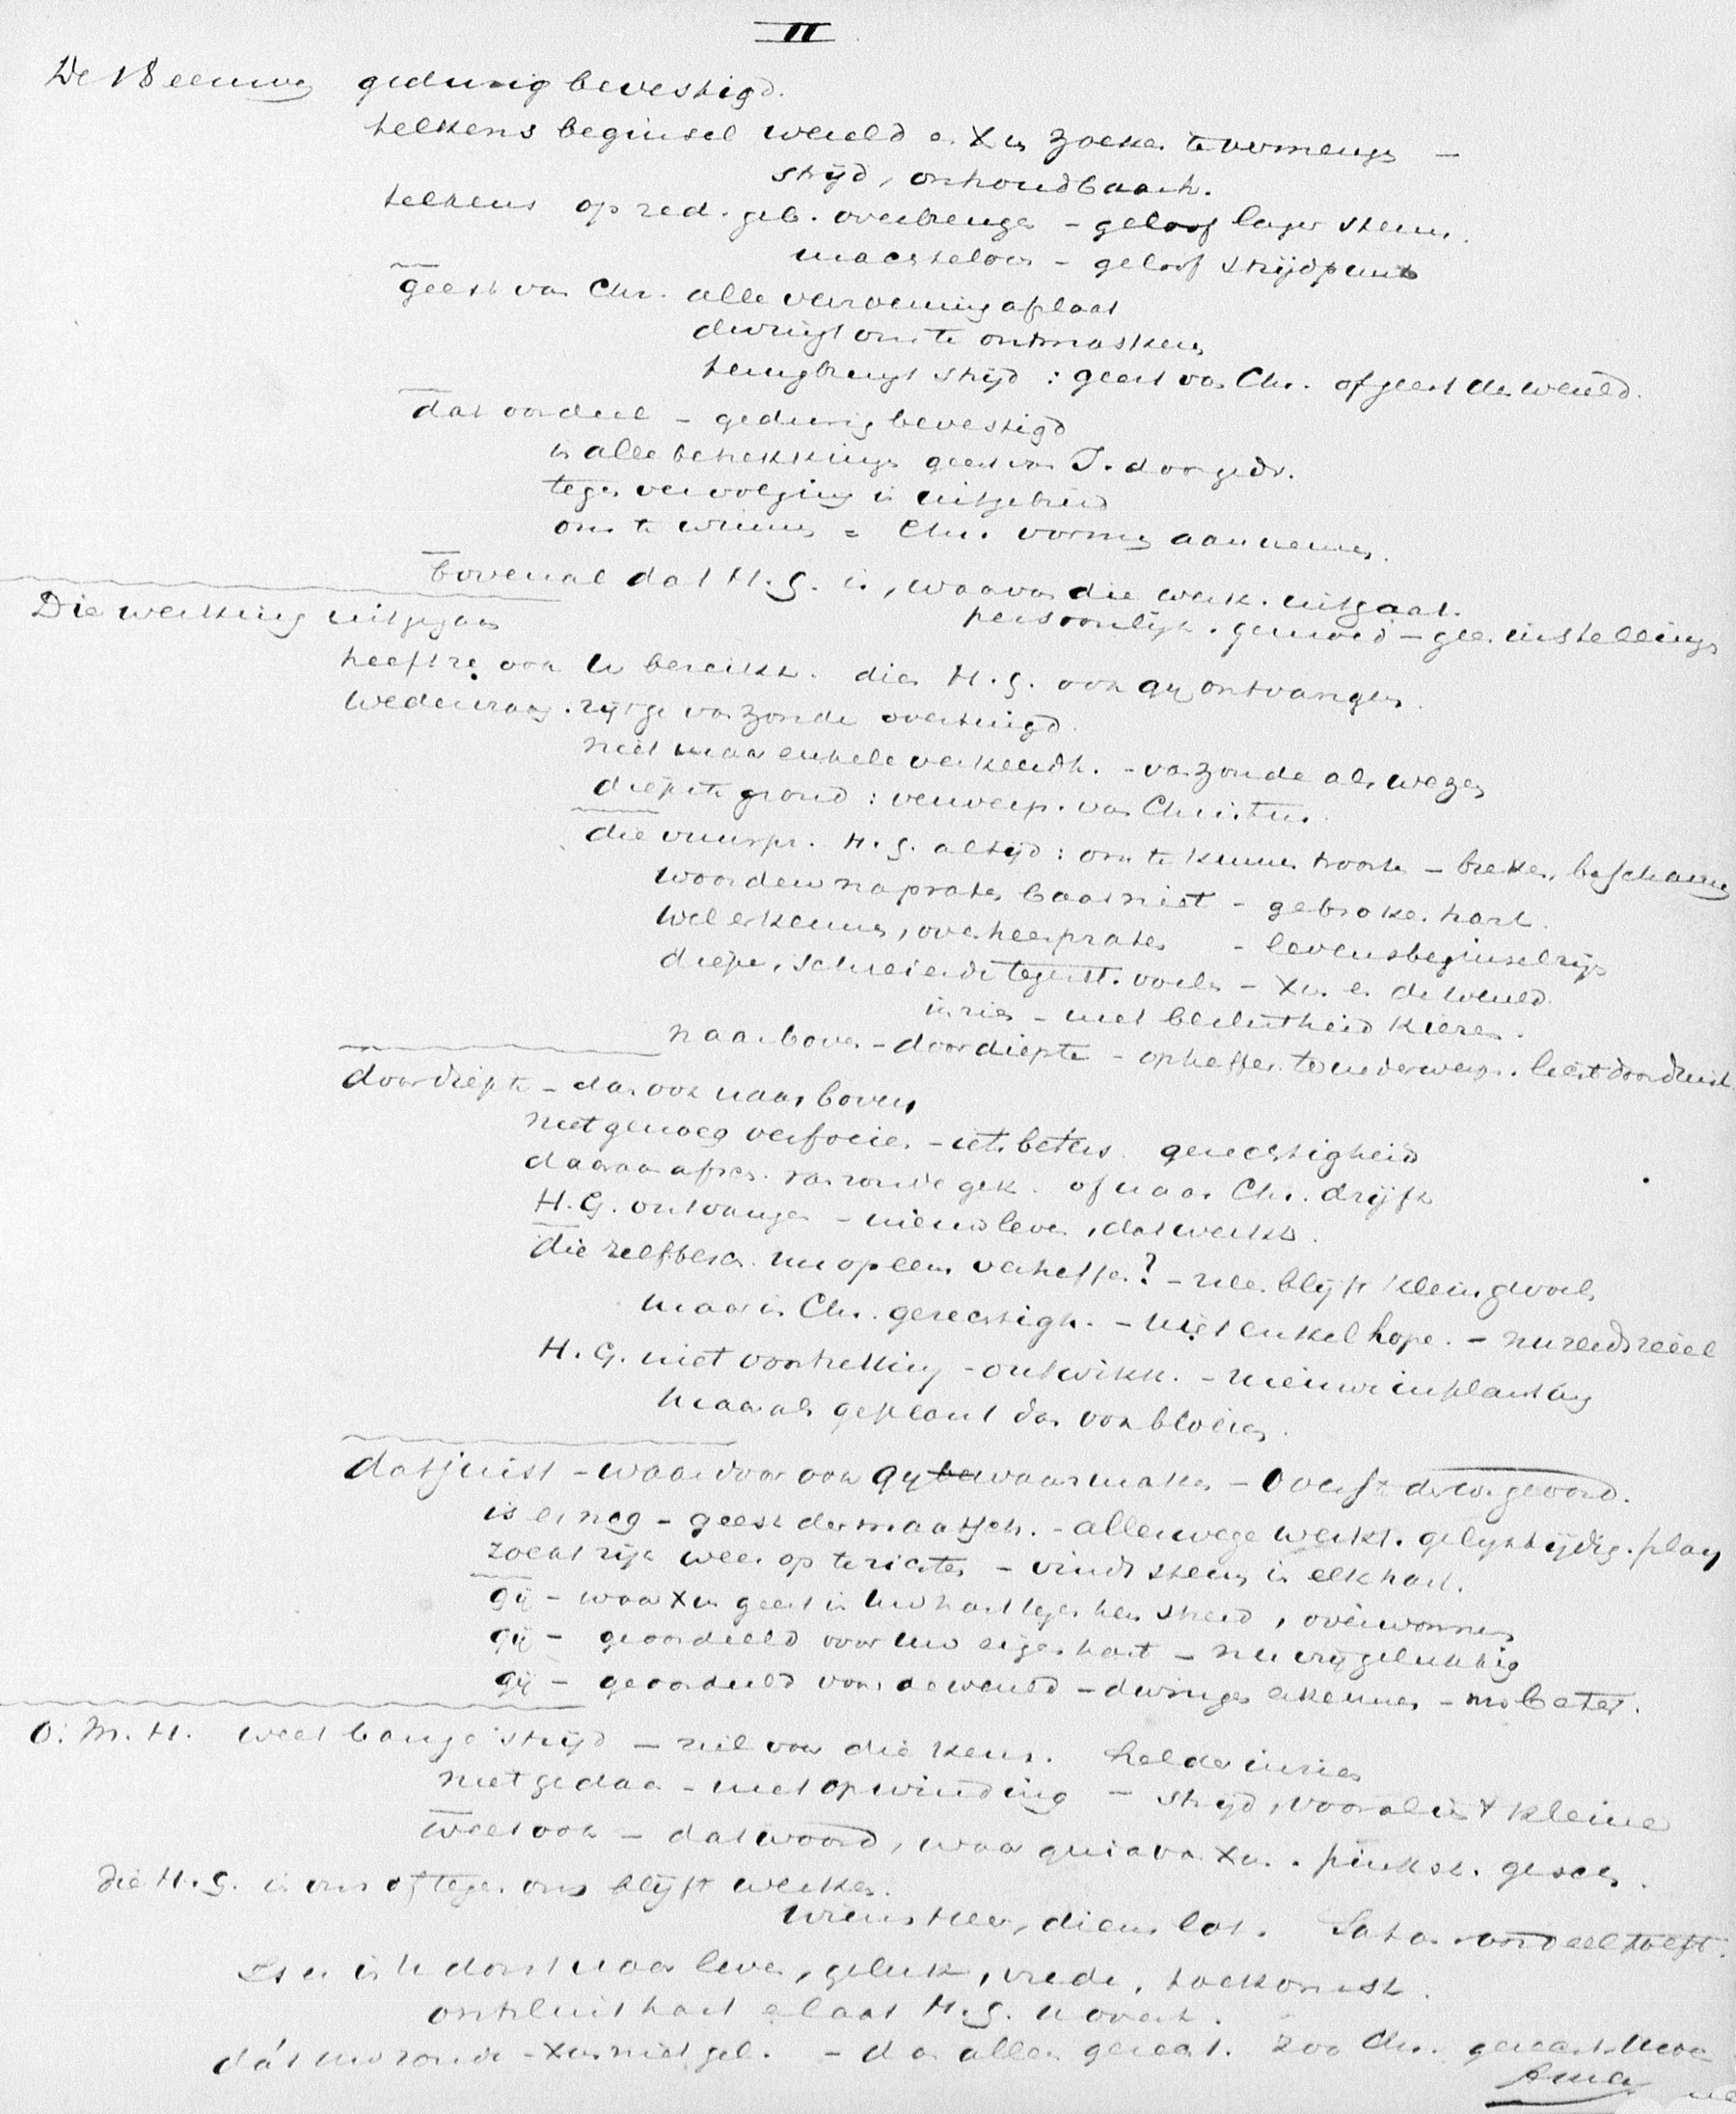 II
De 18 eeuwen gedurig bevestigd.
telkens beginsel wereld en Xus zoeken te vermengen –
strijd, onhoudbaarh.
telkens op red. geb. overbrengen – geloof lager steun.
machteloos – geloof strijdpunt
geest van Chr. alle verv aflaat
dwingt om te ontmaskeren
terugbrengt strijd : geest van Chr. of geest der wereld.
dat oordeel – gedurig bevestigd
in alle betrekkingen geest van J. doorgedr.
tegen vervolging in uitgebreid
om te winnen = Chr. vormen aannemen.
bovenal dat H. G. is, waarvan die werk. uitgaat.
persoonlijk. gemoed – geen instellingen
Die werking uitgegaan
heeft ze ook U bereikt. dien H. G. ook gij ontvangen.
wedervraag. zijt ge van zonde overtuigd.
niet maar enkele verkeerdh. – van zonde als wezen
diepste grond : verwerp. van Christus.
die H. G. altijd : om te kunnen troosten – breken, beschamen
woorden napraten baat niet – gebroken hart.
wel erkennen, overheen praten – levensbeginsel zijn
diepe, schreiende tegenst. voelen – Xus en de wereld.
inzien – met beslistheid kiezen.
naar boven – door diepte – opheffen, te onderwerpen. licht door duist.
door diepte – dan ook naar boven
niet genoeg verfoeien – iets beters. gerechtigheid
daaraan afmeten. van zonde gek. of naar Chr. drijft
H. G. ontvangen – nieuw leven, dat werkt.
die zelfbesch. nu opeens verheffen? – neen blijft klein gevoelen
maar in Chr. gerechtigh. – niet enkel hope. – nu reeds reëel
H. G. niet voortzetting – ontwikk. – nieuwe inplanting
maar als geplant dan ook bloeien.
dat juist – waardoor ook gij waarmaken – Overste der wer. geoord.
is er nog – geest der maatsch. – allerwege werkt. gelijktijdig. plan
zoekt rijk weer op te richten – vindt steun in elk hart.
gij – waar Xus geest in uw hart tegen hem streed, overwonnen
gij – geoordeeld voor uw eigen hart – nu vrij gelukkig
gij – geoordeeld voor de wereld – dwingen erkennen – nu beter.
G. M. H. weet bange strijd – ziel voor die keus. helder inzien
niet gedaan – met opwinding – strijd, vooral in 't kleine
weet ook – dat woord, waar Xus. pinkst. gesch.
die H. G. in ons of tegen ons blijft werken.
wiens Heer, diens lot. Satan oordeel treft.
Is er in U dorst naar leven, geluk, vrede, toekomst.
ontsluit hart en laat H. G. U overt.
dát uw zonde – Xus niet gel. – dan alleen gerecht. zoo Chr.
Amen